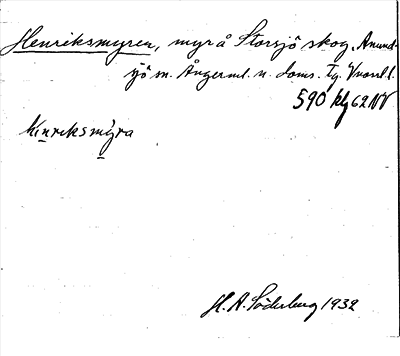 Henriksmyren, myr å Storsjö skog, Anund-
sjö sn. Ångerml. n. doms. Tg.
590 klg 62 NV
hinriksmyra
H. A. Söderberg 1932